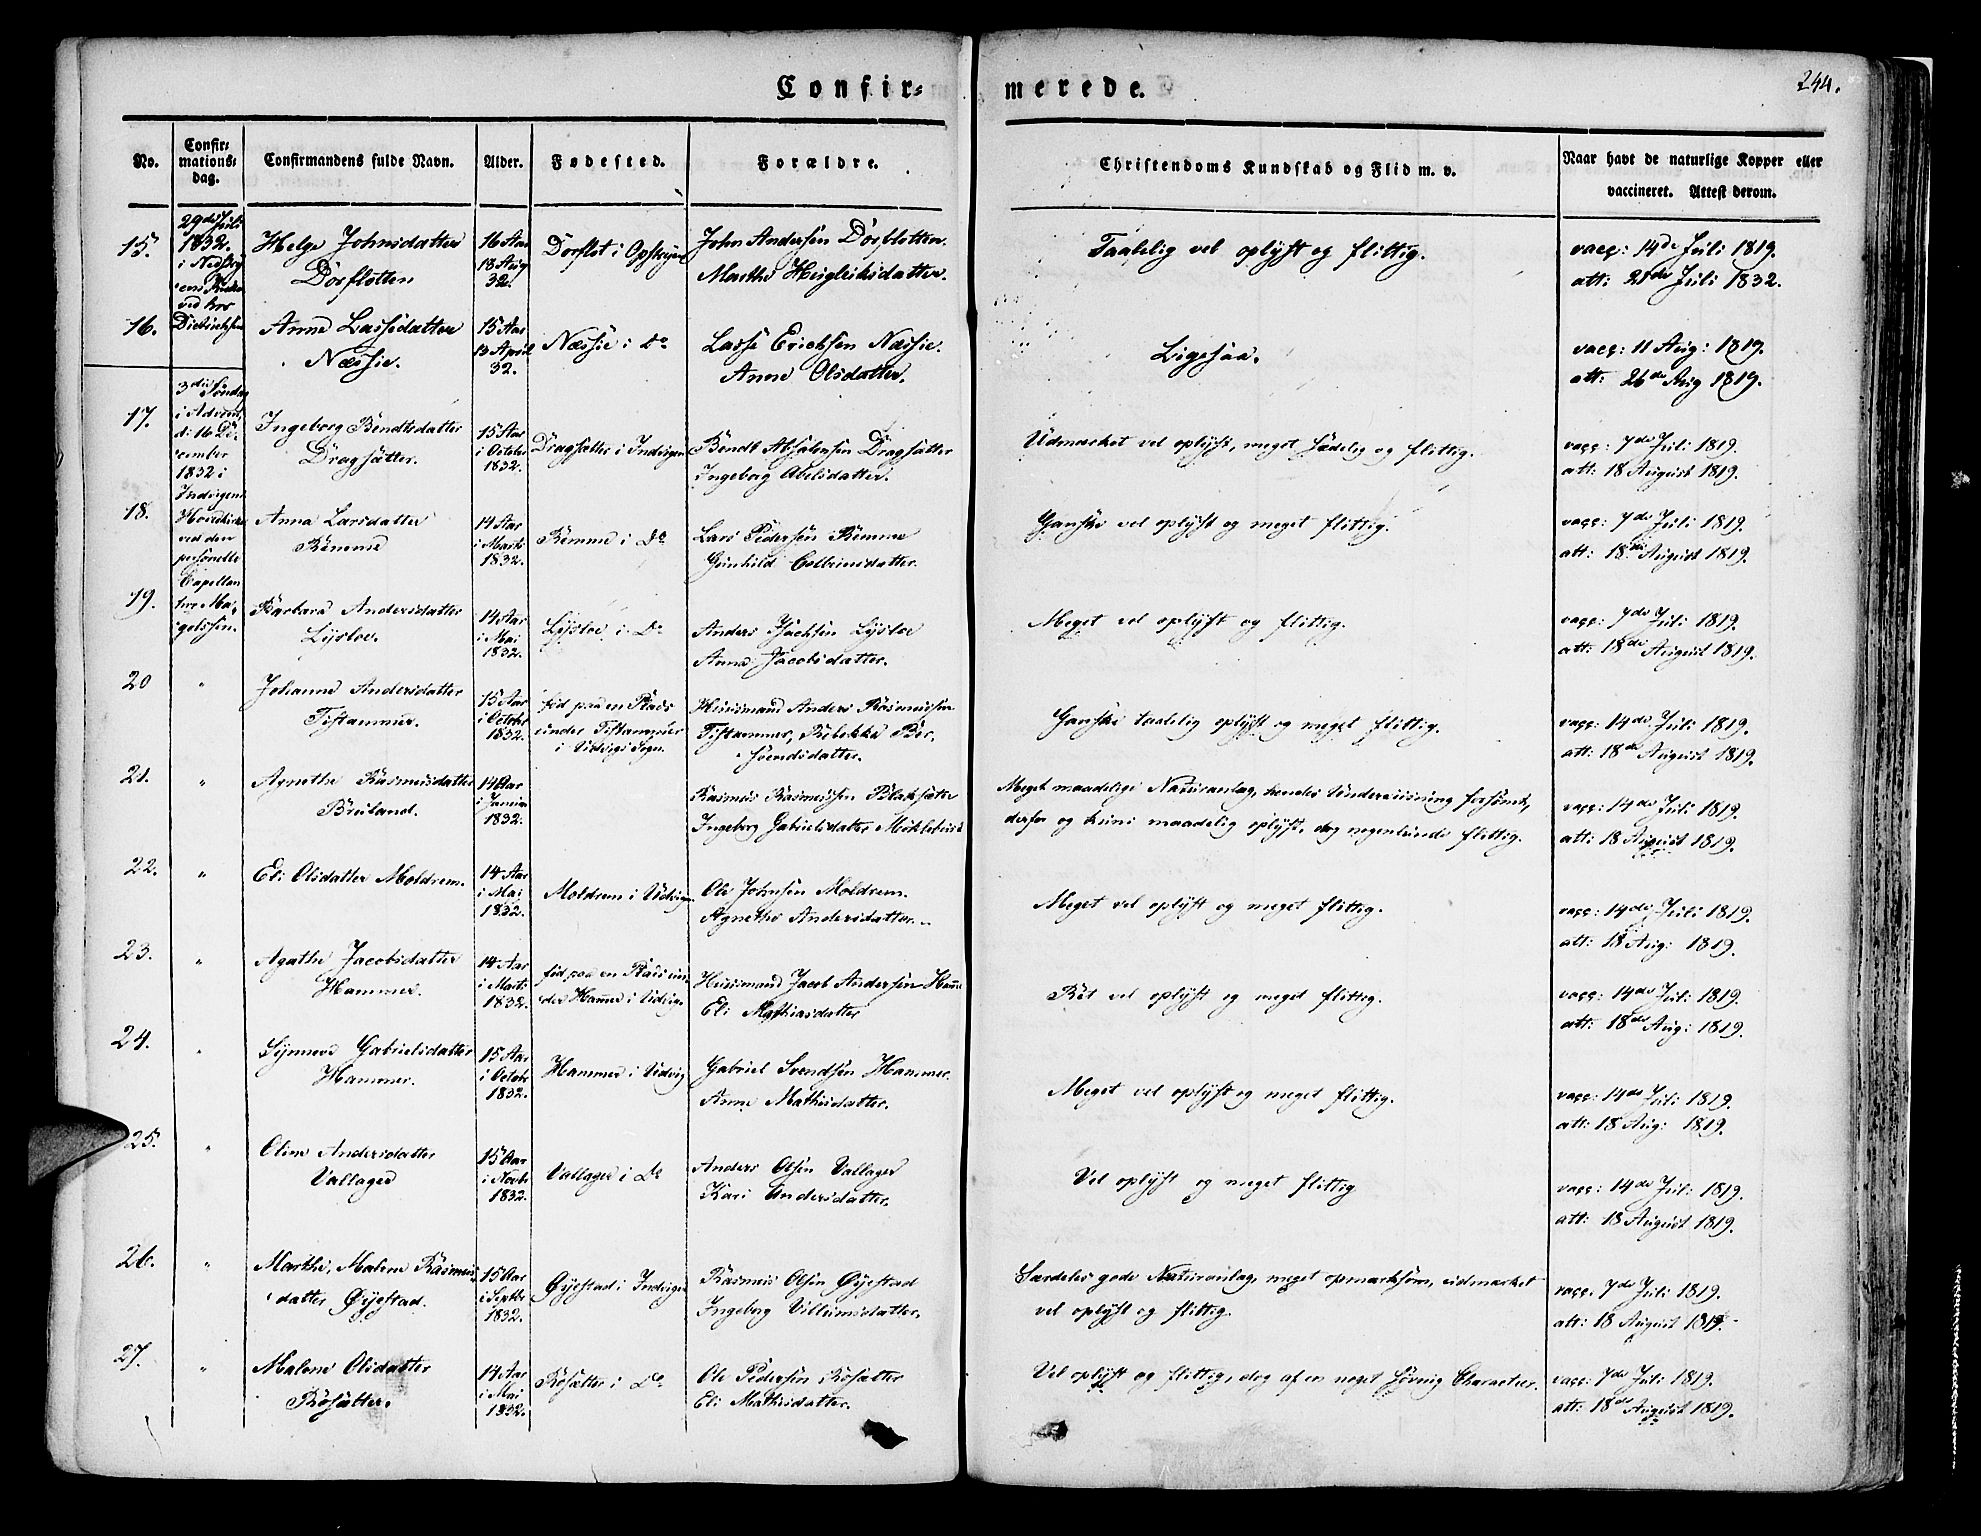 Confir-
merede.
244.
No.
Confir-
mations-
dag.
Confirmandens fulde Navn.
Alder.
Fødested.
Forældre.
Christendoms Kundskab og Flid m. v.
Naar havt de naturlige Kopper eller
vaccineret. Attest derom.
29de Juli
1832.
i Nedstry-
ens Kirke
ved hrr
Diedrichsen
15.
Helge Johnsdatter
Dòsflotten
16 Aar
18 Aug
32.
Dòsflot i Opstryen
John Andersen Dòsflotten.
Marthe Heigleiksdatter.
Taalelig vel oplyst og flittig.
vacc: 14de Juli 1819.
att: 21de Juli 1832.
16.
Anne Lassedatter
Næssie.
15 Aar
13 April
32.
Næssie i Do
Lasse Ericksen Næssie.
Anne Olsdatter.
Ligesaa.
vacc: 11 Aug: 1819.
att: 26de Aug 1819.
3die Søndag
i Advent,
d: 16 De-
cember
1832 i
Indvigens
Hovedkirke
ved den
personelle
Capellan
hrr Ma-
gelssen.
17.
Ingeborg Bendtsdatter
Dragsætter.
15 Aar
i October
1832.
Dragsætter i Indvigen
Bendt Absalonsen Dragsætter
Ingeborg Abelsdatter.
Udmærket vel oplyst, meget sædelig og flittig.
vacc: 7de Juli 1819.
att: 18 August 1819.
18.
Anna Larsdatter
Rømme
14 Aar
i Marts
1832.
Rømme i Do
Lars Pedersen Rømme
Gunhild Colbeinsdatter.
Ganske vel oplyst og meget flittig.
vacc: 7de Juli 1819.
att: 18de August 1819.
19.
Barbara Andersdatter
Lysloe.
14 Aar
i Mai
1832.
Lysloe i Do
Anders Isachsen Lysloe
Anna Jacobsdatter.
Meget vel oplyst og flittig.
vacc: 7de Juli 1819.
att: 18de August 1819.
20
"
Johanne Andersdatter
Tistammer.
15 Aar
i Octobr
1832.
fød paa en Plads
under Tistammer
i Udvigs Sogn.
Huusmand Anders Rasmussen
Tistammer, Rebekka Ber-
svendsdatter.
Ganske taalelig oplyst og meget flittig.
vacc: 14de Juli 1819.
att: 18de August 1819.
21.
"
Agnethe Rasmusdatter
Bruland.
14 Aar
i Januar
1832.
Rasmus Rasmussen Blaksæter
Ingeborg Gabrielsdatter Mòklebust
Meget maadelige Naturanlæg, hendes Underviisning forsømt,
derfor og kuns maadelig oplyst, dog nogenlunde flittig.
vacc: 14de Juli 1819.
att: 18 August 1819.
22.
"
Eli Olsdatter Moldrem.
14 Aar
i Mai
1832.
Moldrem i Udvigen
Ole Johnsen Moldrem.
Agnethe Andersdatter.
Meget vel oplyst og meget flittig.
vacc: 14de Juli 1819.
att: 18 Aug: 1819.
23.
"
Agathe Jacobsdatter
Hammer.
14 Aar
i Marts
1832.
fød paa en Plads un-
der Hamer i Udvigen
Huusmand Jacob Andersen Hame
Eli Mathiasdatter
Ret vel oplyst og meget flittig.
vacc: 14de Juli 1819.
att: 18de Aug: 1819.
24.
"
Synneve Gabrielsdatter
Hammer.
15 Aar
i Octobr
1832.
Hammer i Udvig
Gabriel Svendsen Hammer.
Anne Mathisdatter.
Meget vel oplyst og meget flittig.
vacc: 14de Juli 1819.
att: 18 Aug: 1819.
25.
"
Oline Andersdatter
Vallager
15 Aar
i Novbr
1832.
Vallager i Do
Anders Olsen Vallager
Kari Andersdatter.
Vel oplyst og meget flittig
vacc: 14de Juli 1819.
att: 18 August 1819.
26.
"
Marthe, Malene Rasmus-
datter Øyestad.
15 Aar
i Septbr
1832.
Øyestad i Indvigen
Rasmus Olsen Øyestad
Ingeborg Villumsdatter.
Særdeles gode Naturanlæg, meget opmærksom, udmærket
vel oplyst og flittig.
vacc. 7de Juli 1819.
att: 18 August 1819.
27.
"
Malene Olsdatter
Ròsætter.
14 Aar
i Mai
1832.
Ròsætter i Do
Ole Pedersen Ròsætter
Eli Mathisdatter.
Vel oplyst og flittig, dog af en noget Character.
vacc: 7de Juli 1819.
att: 18de August 1819.